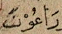 رَاعُوْنَ